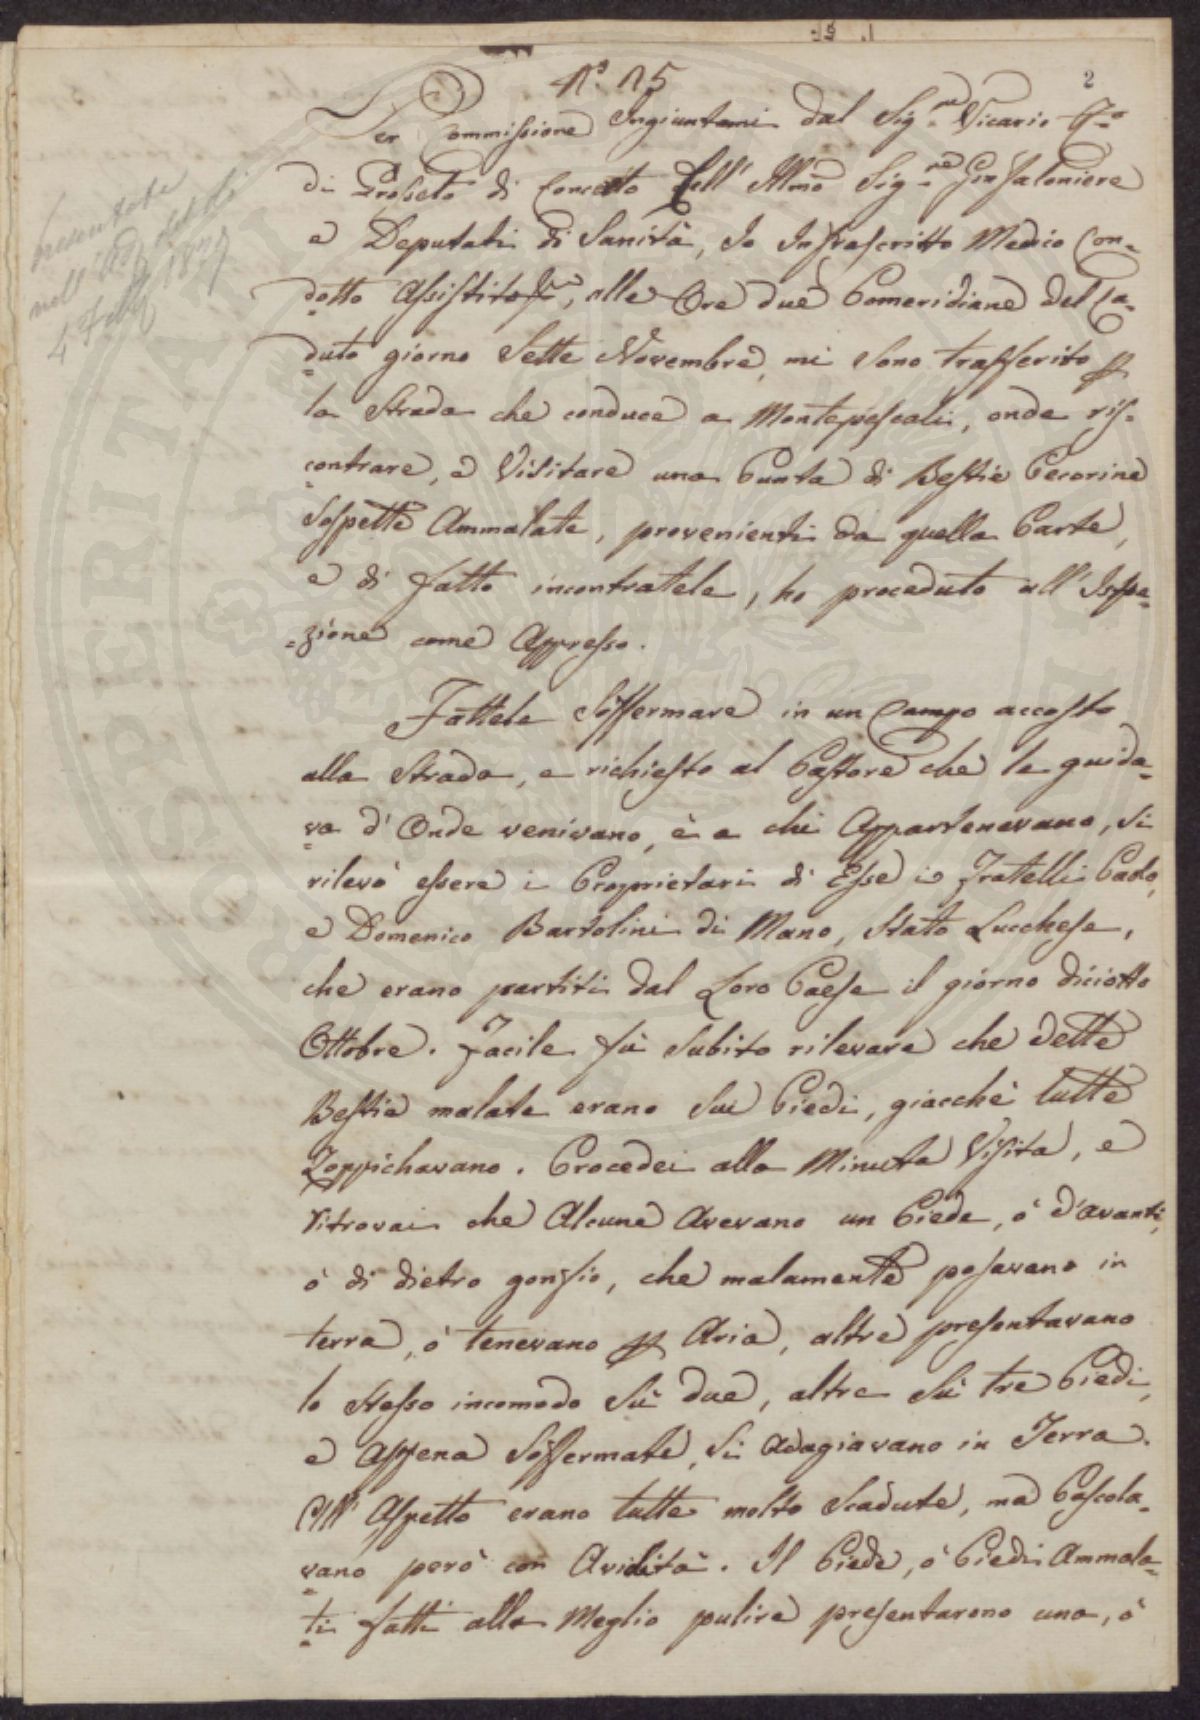 N.° 15
2
Per Commissione Ingiuntami dal Sig.re Vicario R.o
di Grosseto di Concerto dell' Illmo Sig.re Gonfaloniere
e Deputati di Sanità, Io Infrascritto Medico Con=
dotto Assistito, alle Ore due Pomeridiane del Ca=
duto giorno Sette Novembre, mi sono trasferito p
la Strada che conduce a Montepescali, onde ris=
contrare, e Visitare una Punta di Bestie Pecorine
Sospette Ammalate, provenienti da quella Parte,
e di fatto incontratele, ho proceduto all' Ispe=
=zione come Appresso.
Fattele Soffermare in un Campo accosto
alla Strada, e richiesto al Pastore che le guida=
va d' Onde venivano, è a chi Appartenevano, Si
rilevò essere i Proprietari di Esse i Fratelli Paolo,
e Domenico Bartolini di Mano, Stato Lucchese,
che erano partiti dal Loro Paese il giorno diciotto
Ottobre. Facile fù Subito rilevare che dette
Bestie malate erano Sui Piedi, giacchè tutte
Zoppichavano. Procedei alla Minuta Visita, e
ritrovai che Alcune Avevano un Piede, ò d'avanti,
ò di dietro gonfio, che malamente posavano in
terra, ò tenevano p Aria, altre presentavano
lo Stesso incomodo Sù due, altre Sù tre Piedi,
e Appena Soffermate, Si Adagiavano in Terra.
All' Aspetto erano tutte molto Scadute, ma Pascola=
vano però con Avidità. Il Piede, ò Piedi Ammala=
ti fatti alla Meglio pulire presentarono una, ò
presentata
4 Febb